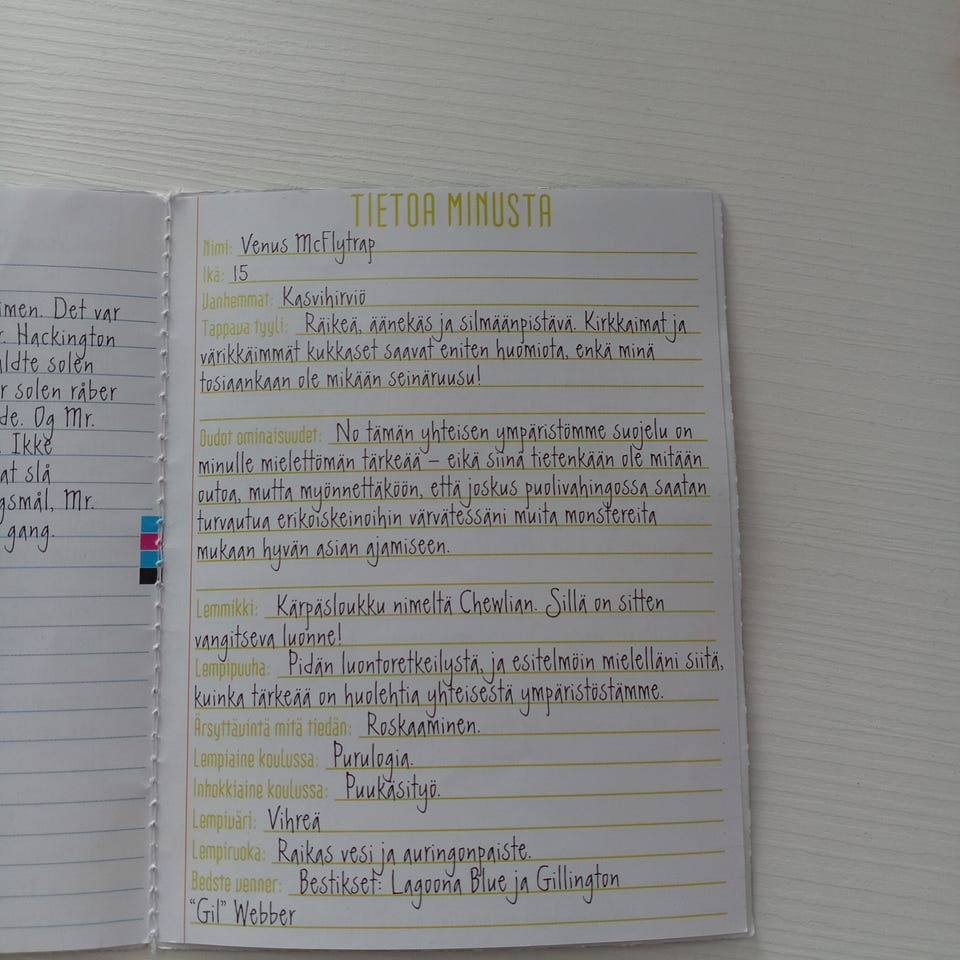 imen. Det var
r. Hackington
ldte solen
r solen råber
de. Og Mr.
Ikke
at slå
gsmål, Mr.
gang.
TIETOA MINUSTA
Nimi: Venus McFlytrap
Ikä: 15
Vanhemmat: Kasvihirviö
Tappava tyyli: Räikeä, äänekäs ja silmäänpistävä. Kirkkaimat ja
värikkäimmät kukkaset saavat eniten huomiota, enkä minä
tosiaankaan ole mikään seinäruusu!
Oudot ominaisuudet: No tämän yhteisen ympäristömme suojelu on
minulle mielettömän tärkeää – eikä siinä tietenkään ole mitään
outoa, mutta myönnettäköön, että joskus puolivahingossa saatan
turvautua erikoiskeinoihin värvätessäni muita monstereita
mukaan hyvän asian ajamiseen.
Lemmikki: Kärpäsloukku nimeltä Chewlian. Sillä on sitten
vangitseva luonne!
Lempipuuha: Pidän luontoretkeilystä, ja esitelmöin mielelläni siitä,
kuinka tärkeää on huolehtia yhteisestä ympäristöstämme.
Ärsyttävintä mitä tiedän: Roskaaminen.
Lempiaine koulussa: Purulogia.
Inhokkiaine koulussa: Puukäsityö.
Lempiväri: Vihreä
Lempiruoka: Raikas vesi ja auringonpaiste.
Bedste venner: Bestikset: Lagoona Blue ja Gillington
"Gil" Webber